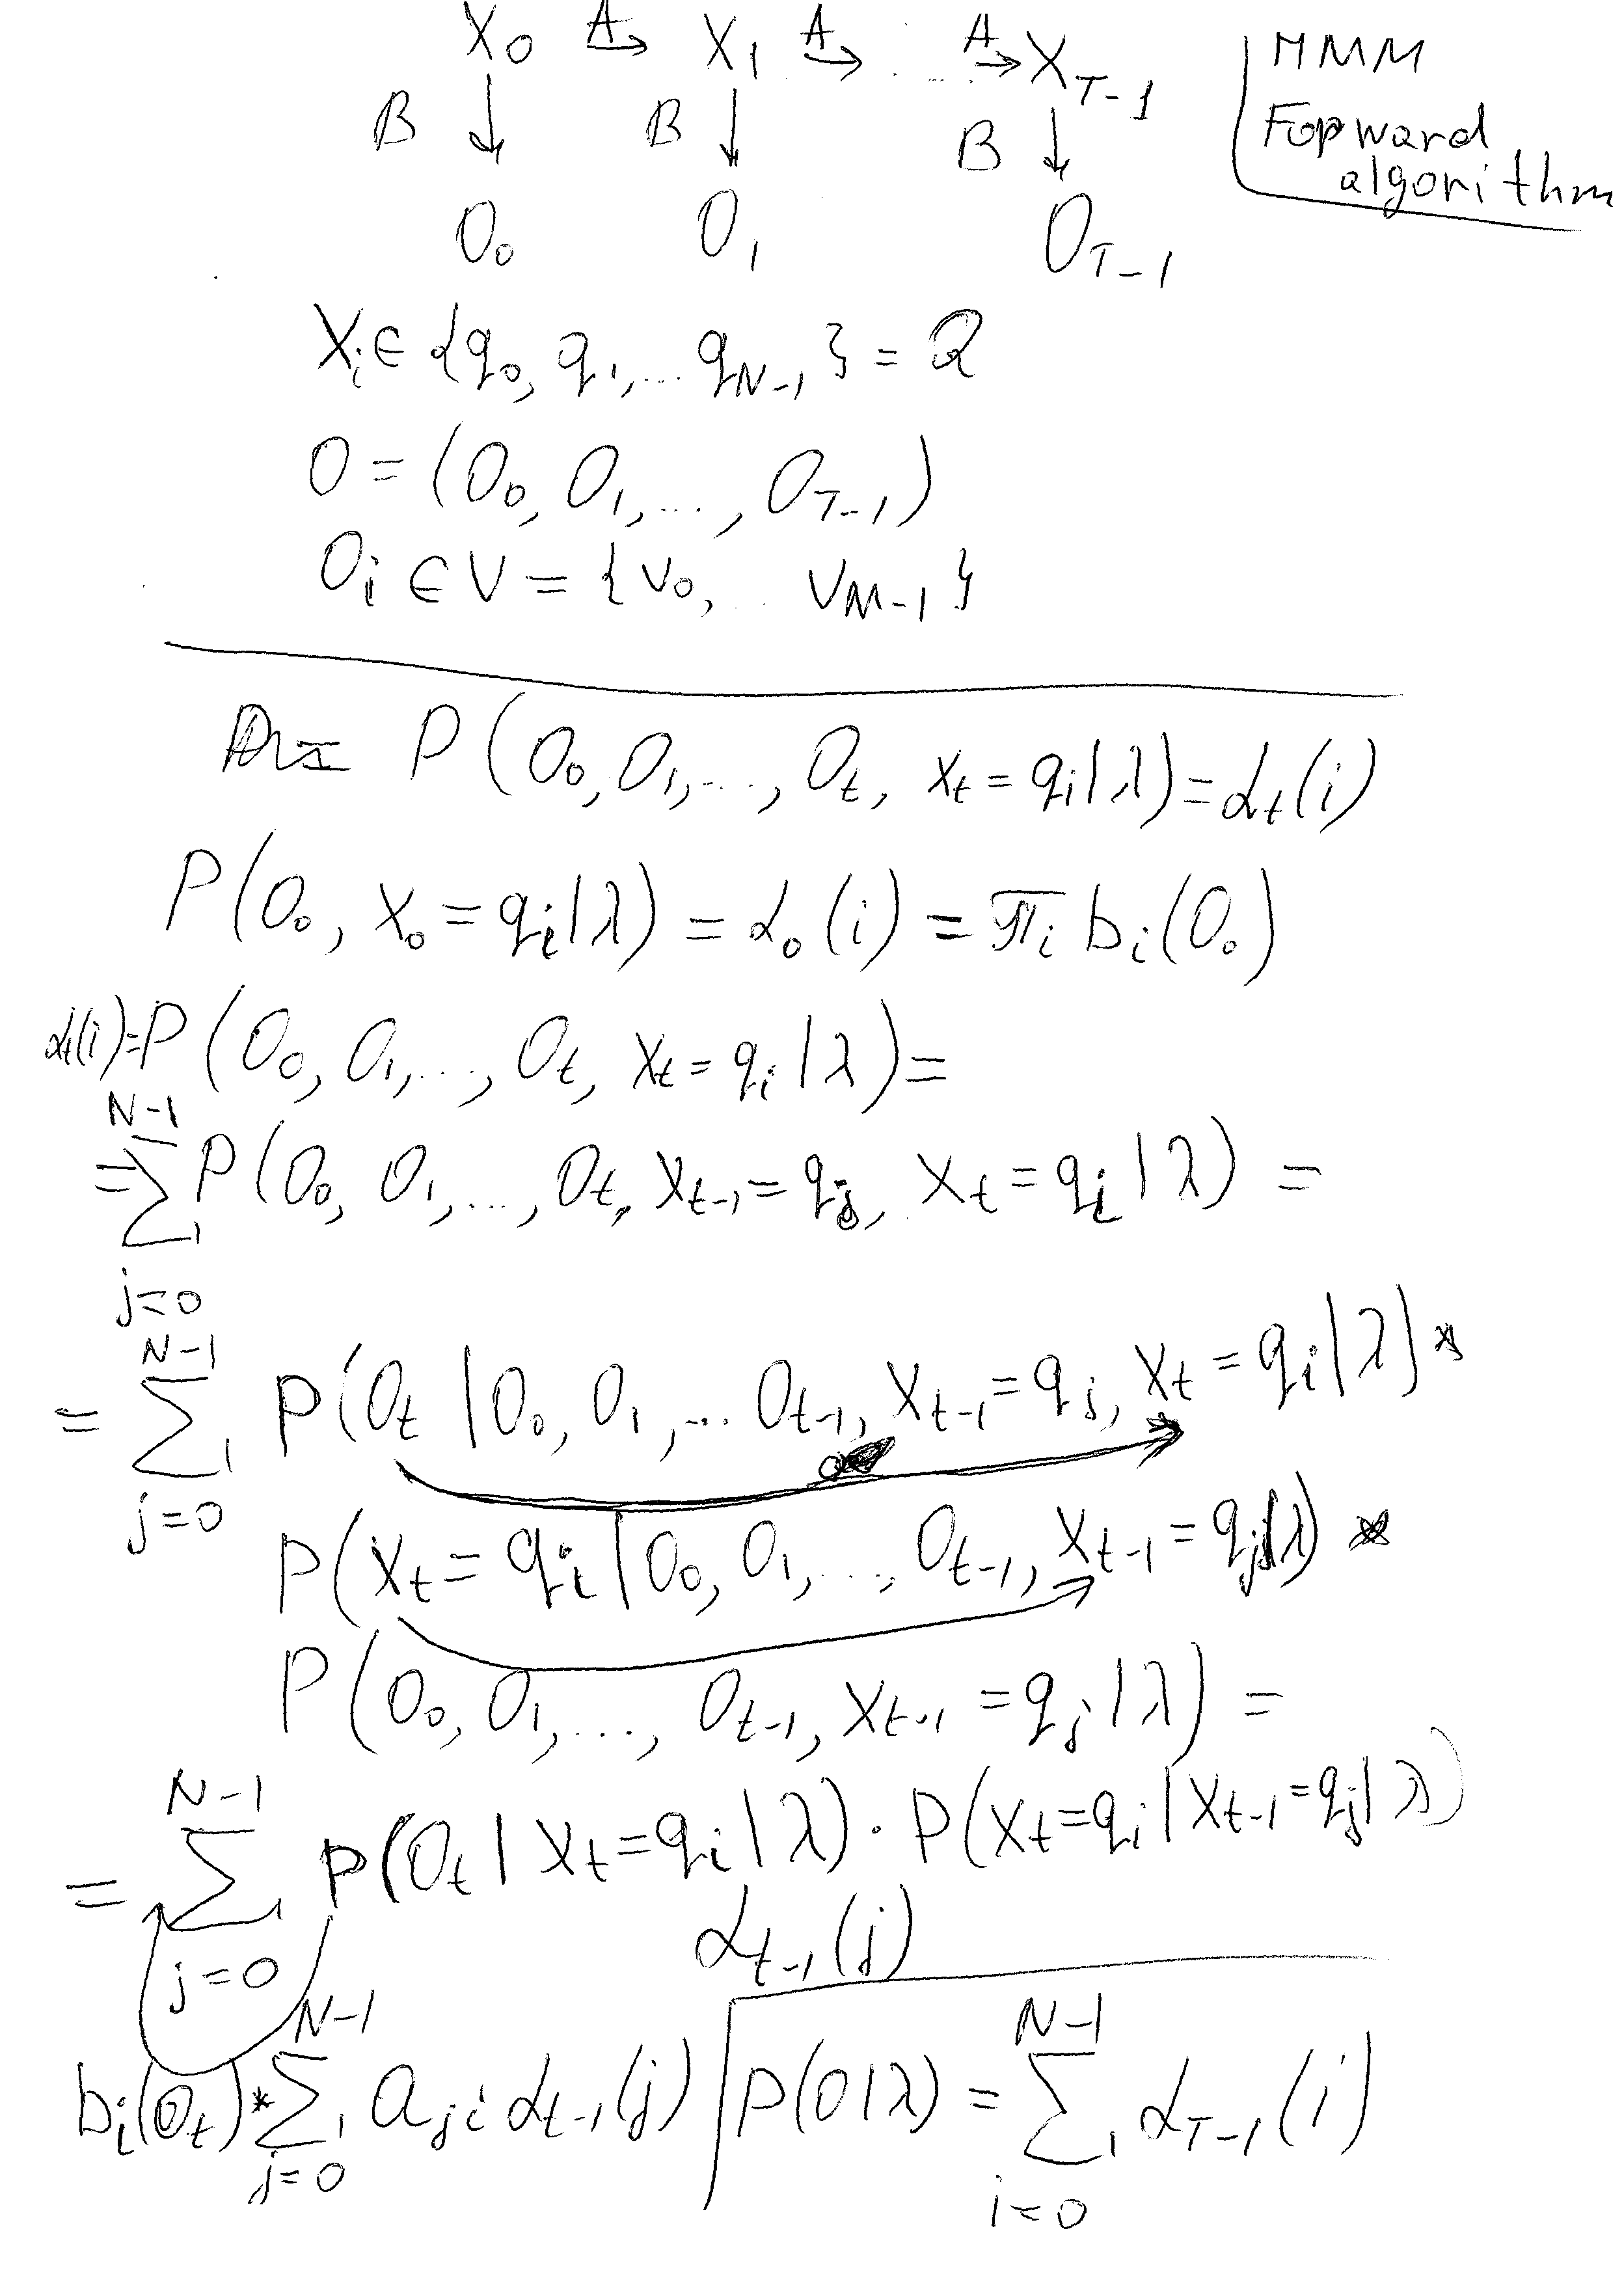 X₀ A→ X₁ A→ ... A→ X_{T-1}
HMM
Forward
algorithm
B ↓ B ↓ B ↓
O₀ O₁ O_{T-1}
X_i ∈ {q₀, q₁, ... q_{N-1}} = Q
O = (O₀, O₁, ..., O_{T-1})
O_i ∈ V = {v₀, ... v_{M-1}}
P(O₀, O₁, ..., O_t, x_t = q_i | λ) = α_t(i)
P(O₀, x₀ = q_i | λ) = α₀(i) = π_i b_i(O₀)
α_t(i) = P(O₀, O₁, ..., O_t, x_t = q_i | λ) =
= ∑_{j=0}^{N-1} P(O₀, O₁, ..., O_t, x_{t-1} = q_j, x_t = q_i | λ) =
= ∑_{j=0}^{N-1} P(O_t | O₀, O₁, ... O_{t-1}, x_{t-1} = q_j, x_t = q_i | λ) *
P(x_t = q_i | O₀, O₁, ..., O_{t-1}, x_{t-1} = q_j | λ) *
P(O₀, O₁, ..., O_{t-1}, x_{t-1} = q_j | λ) =
= ∑_{j=0}^{N-1} P(O_t | x_t = q_i | λ) · P(x_t = q_i | x_{t-1} = q_j | λ)
α_{t-1}(j)
b_i(O_t) * ∑_{j=0}^{N-1} a_{ji} α_{t-1}(j)
P(O | λ) = ∑_{i=0}^{N-1} α_{T-1}(i)